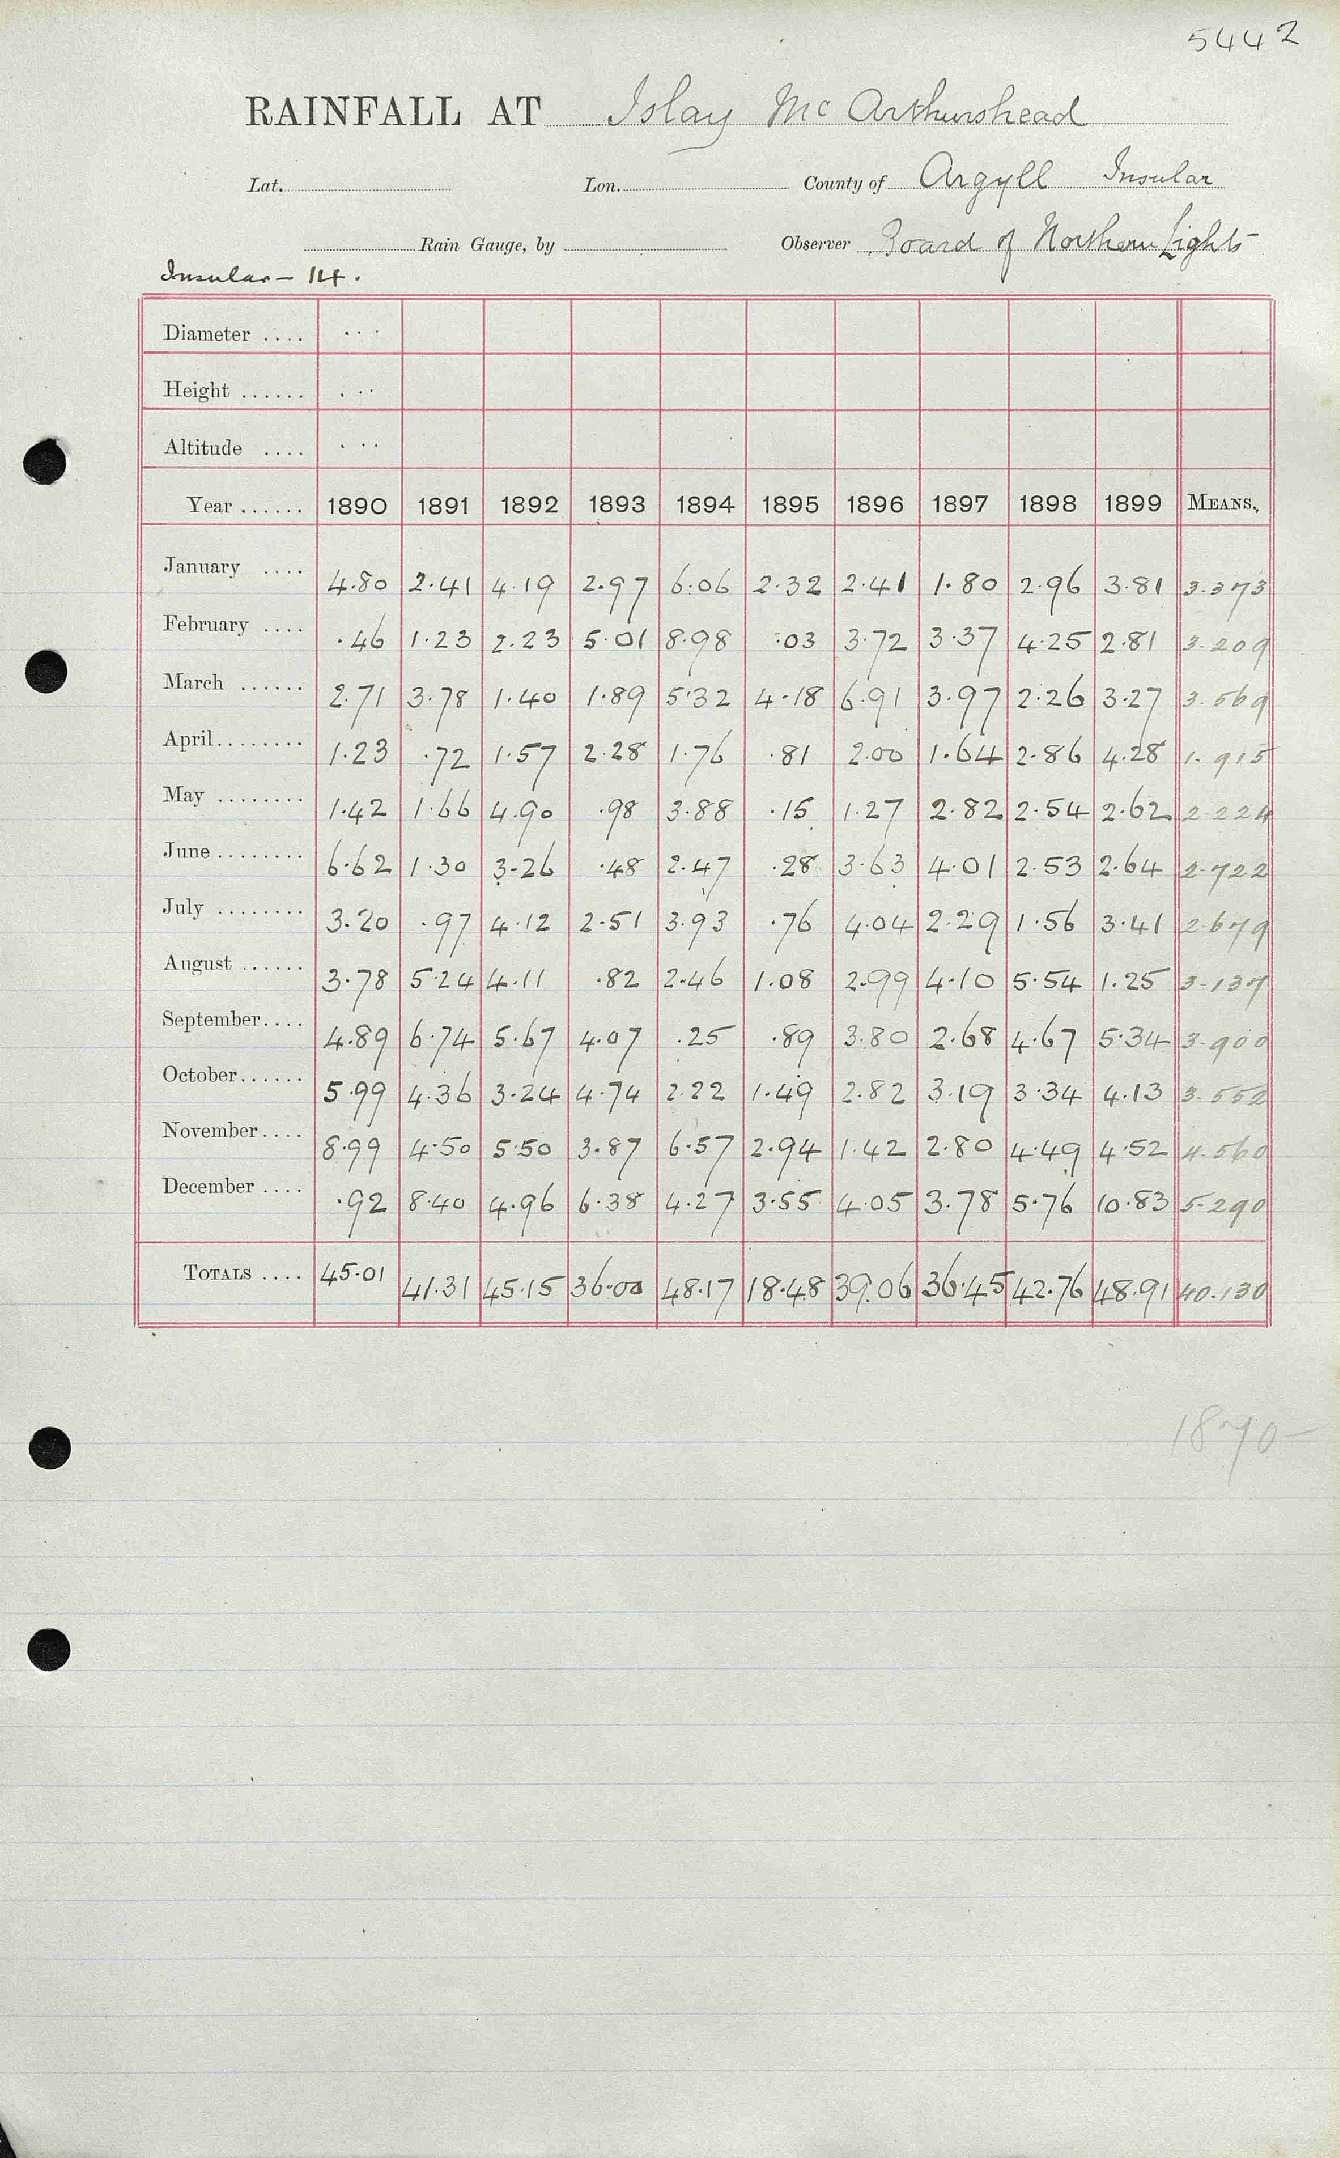 5442
RAINFALL AT Islay McArthurshead
Lat. Lon. County of Argyll Insular
Rain Gauge, by Observer Board of Northern Lights
Insular - 14.
Diameter ....
Height ......
Altitude ....
Year ...... 1890 1891 1892 1893 1894 1895 1896 1897 1898 1899 MEANS.
January .... 4.80 2.41 4.19 2.97 6.06 2.32 2.41 1.80 2.96 3.81 3.373
February .... .46 1.23 2.23 5.01 8.98 .03 3.72 3.37 4.25 2.81 3.209
March ...... 2.71 3.78 1.40 1.89 5.32 4.18 6.91 3.97 2.26 3.27 3.569
April........ 1.23 .72 1.57 2.28 1.76 .81 2.00 1.64 2.86 4.28 1.915
May ........ 1.42 1.66 4.90 .98 3.88 .15 1.27 2.82 2.54 2.62 2.224
June........ 6.62 1.30 3.26 .48 2.47 .28 3.63 4.01 2.53 2.64 2.722
July ........ 3.20 .97 4.12 2.51 3.93 .76 4.04 2.29 1.56 3.41 2.679
August ...... 3.78 5.24 4.11 .82 2.46 1.08 2.99 4.10 5.54 1.25 3.137
September.... 4.89 6.74 5.67 4.07 .25 .89 3.80 2.68 4.67 5.34 3.900
October...... 5.99 4.36 3.24 4.74 2.22 1.49 2.82 3.19 3.34 4.13 3.552
November.... 8.99 4.50 5.50 3.87 6.57 2.94 1.42 2.80 4.49 4.52 4.560
December .... .92 8.40 4.96 6.38 4.27 3.55 4.05 3.78 5.76 10.83 5.290
TOTALS .... 45.01 41.31 45.15 36.00 48.17 18.48 39.06 36.45 42.76 48.91 40.130
1870-